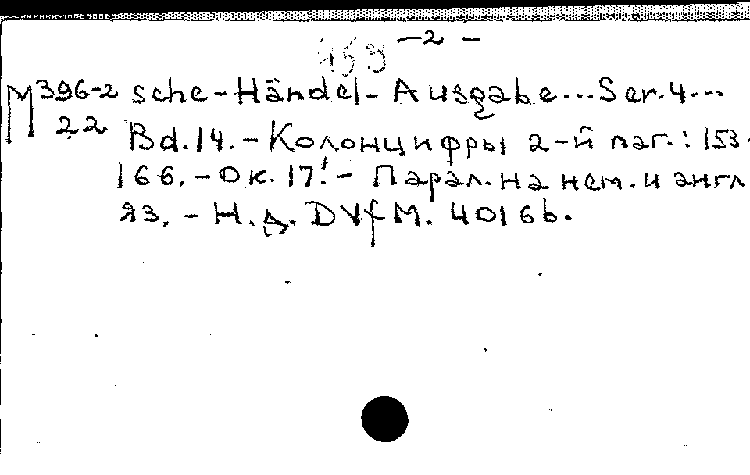 – 2 –
М 396-2 sche-Händel-Ausgabe...Ser.4...
22 Bd.14.-Колонцифры 2-й паг.: 153-
166.-Ок. 17!- Парал. на нем. и англ
яз. - Н.д. DVfM. 40166.